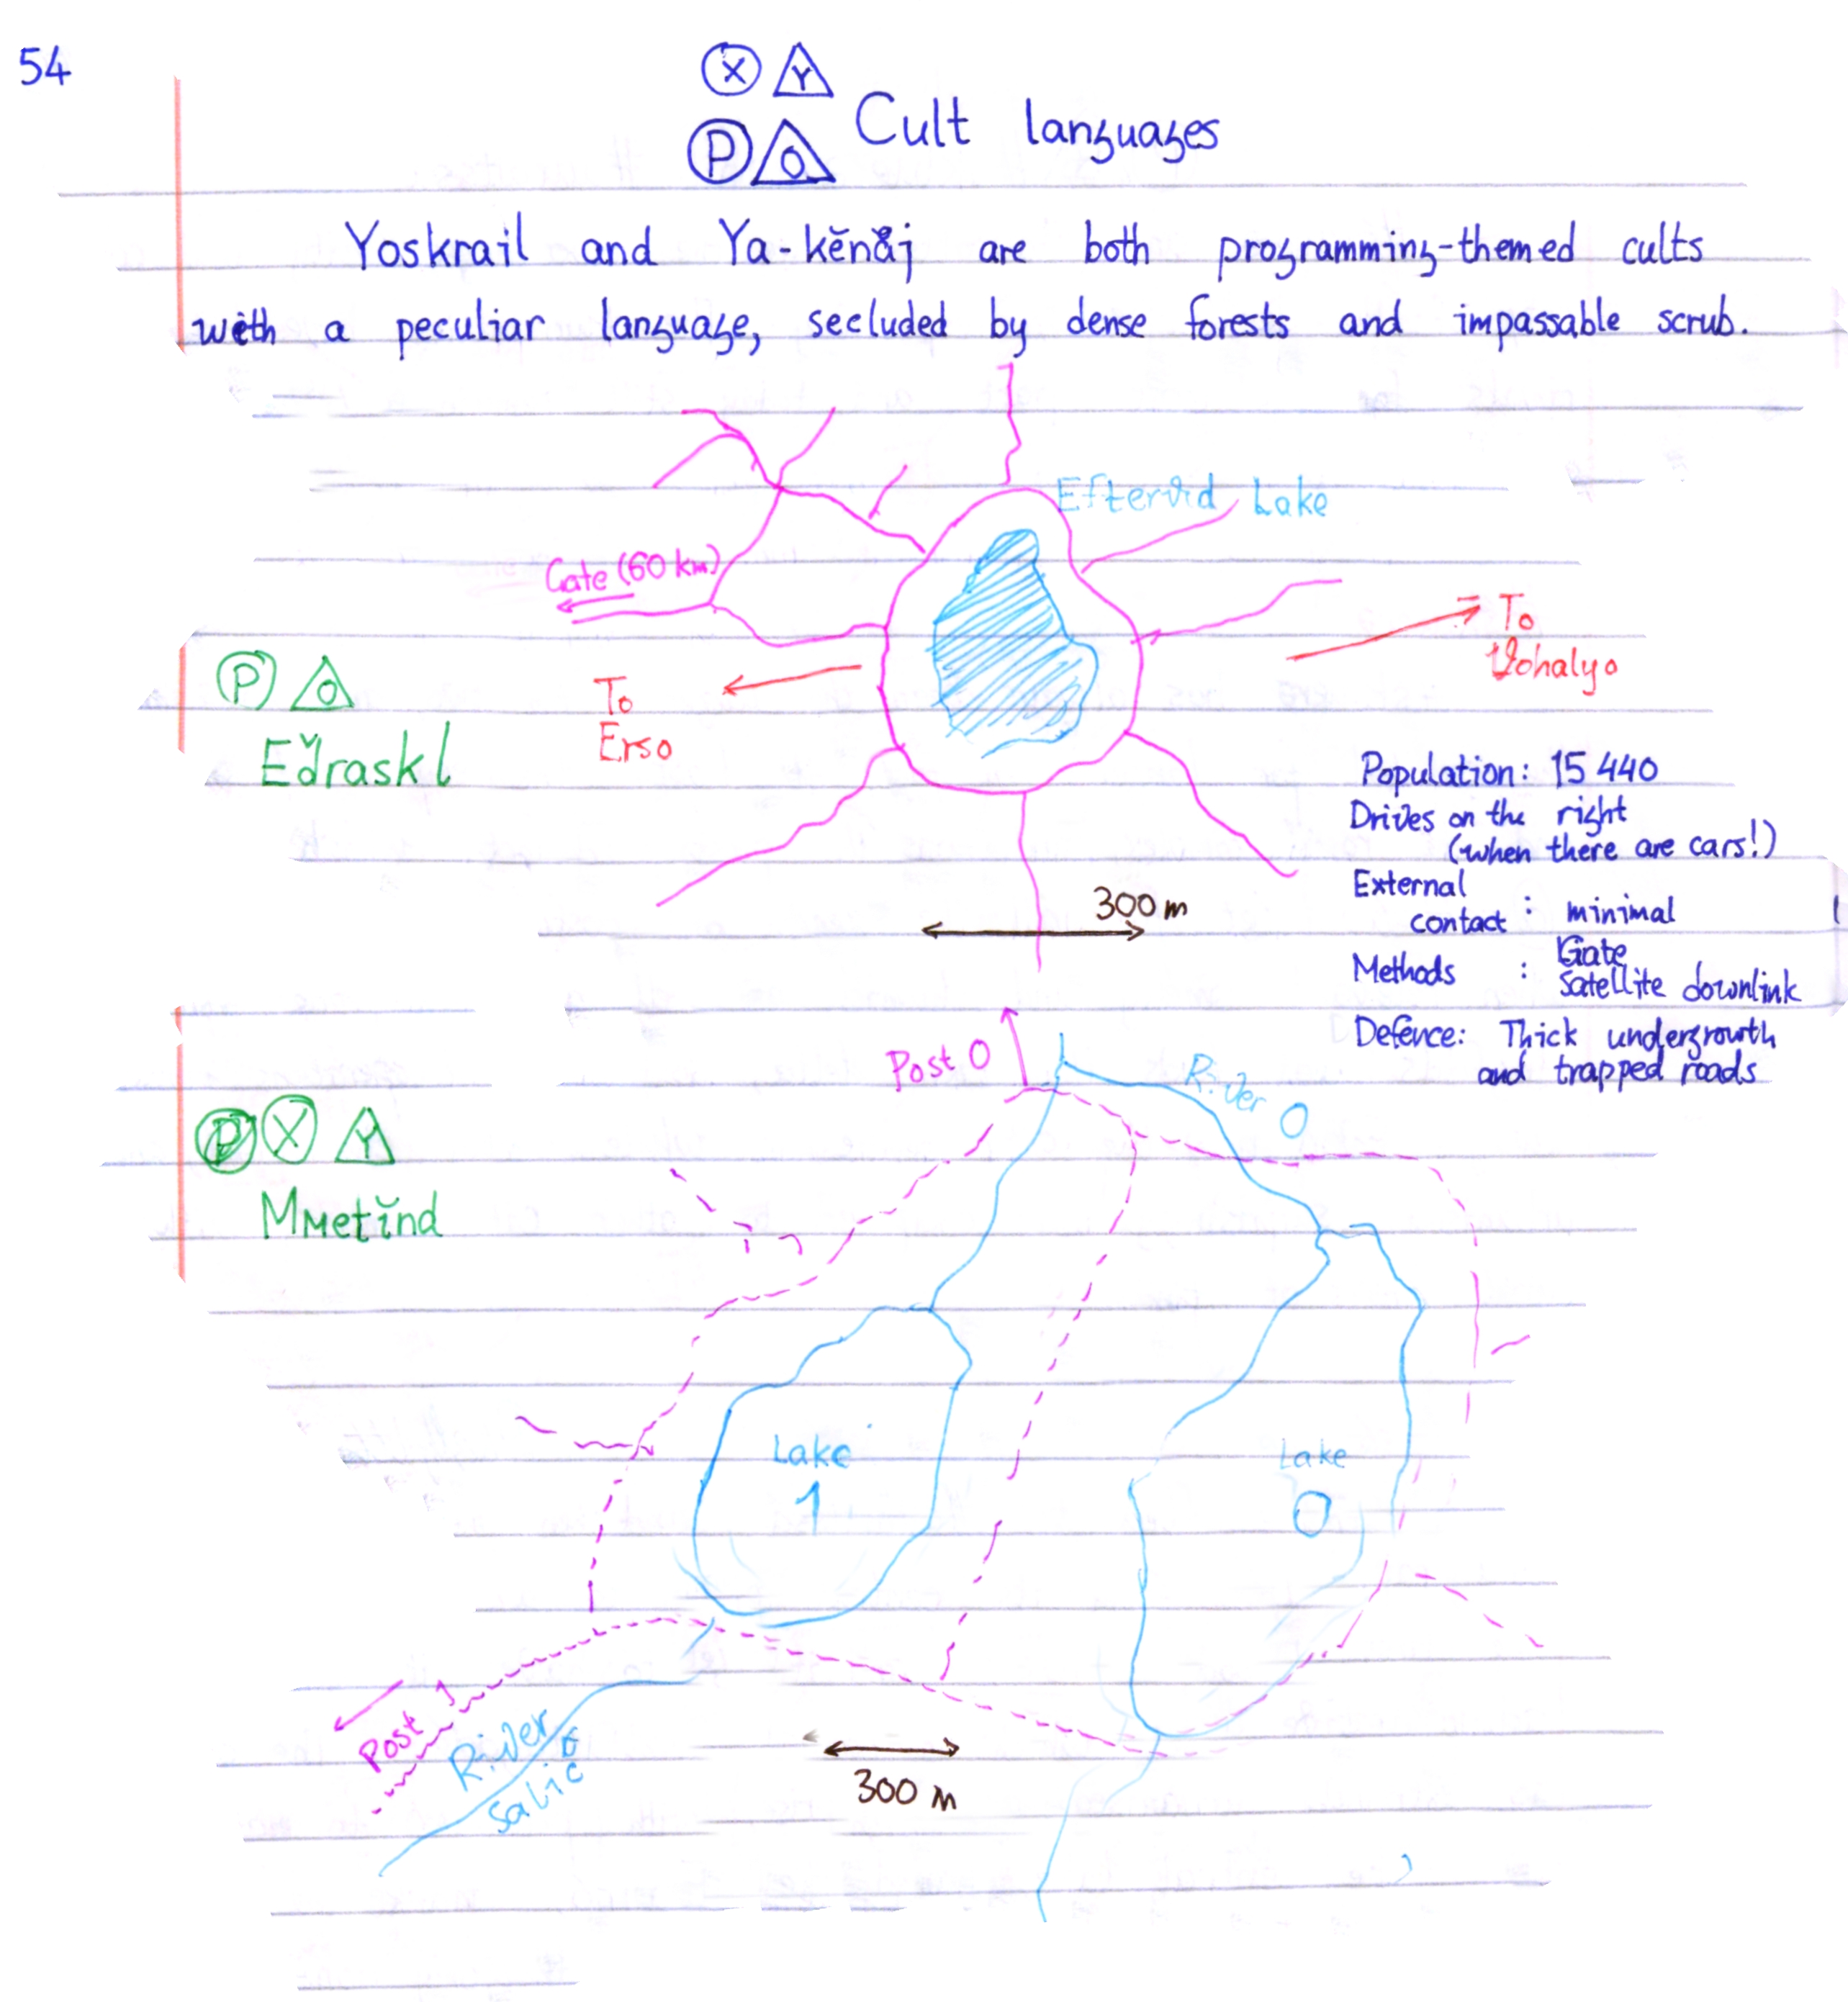 54
X Y
P O
Cult languages
Yoskrail and Ya-kĕnăj are both programming-themed cults
with a peculiar language, secluded by dense forests and impassable scrub.
Lake
Gate (60 km)
To
To
Erso
P O
Eďraskl
Population: 15 440
Drives on the right
(when there are cars!)
External
contact : minimal
Methods : Gate
Satellite downlink
Defence: Thick undergrowth
and trapped roads
300 m
Post 0
River 0
P X Y
Mмetĭnd
Lake
1
Lake
0
Post 1
River
300 m